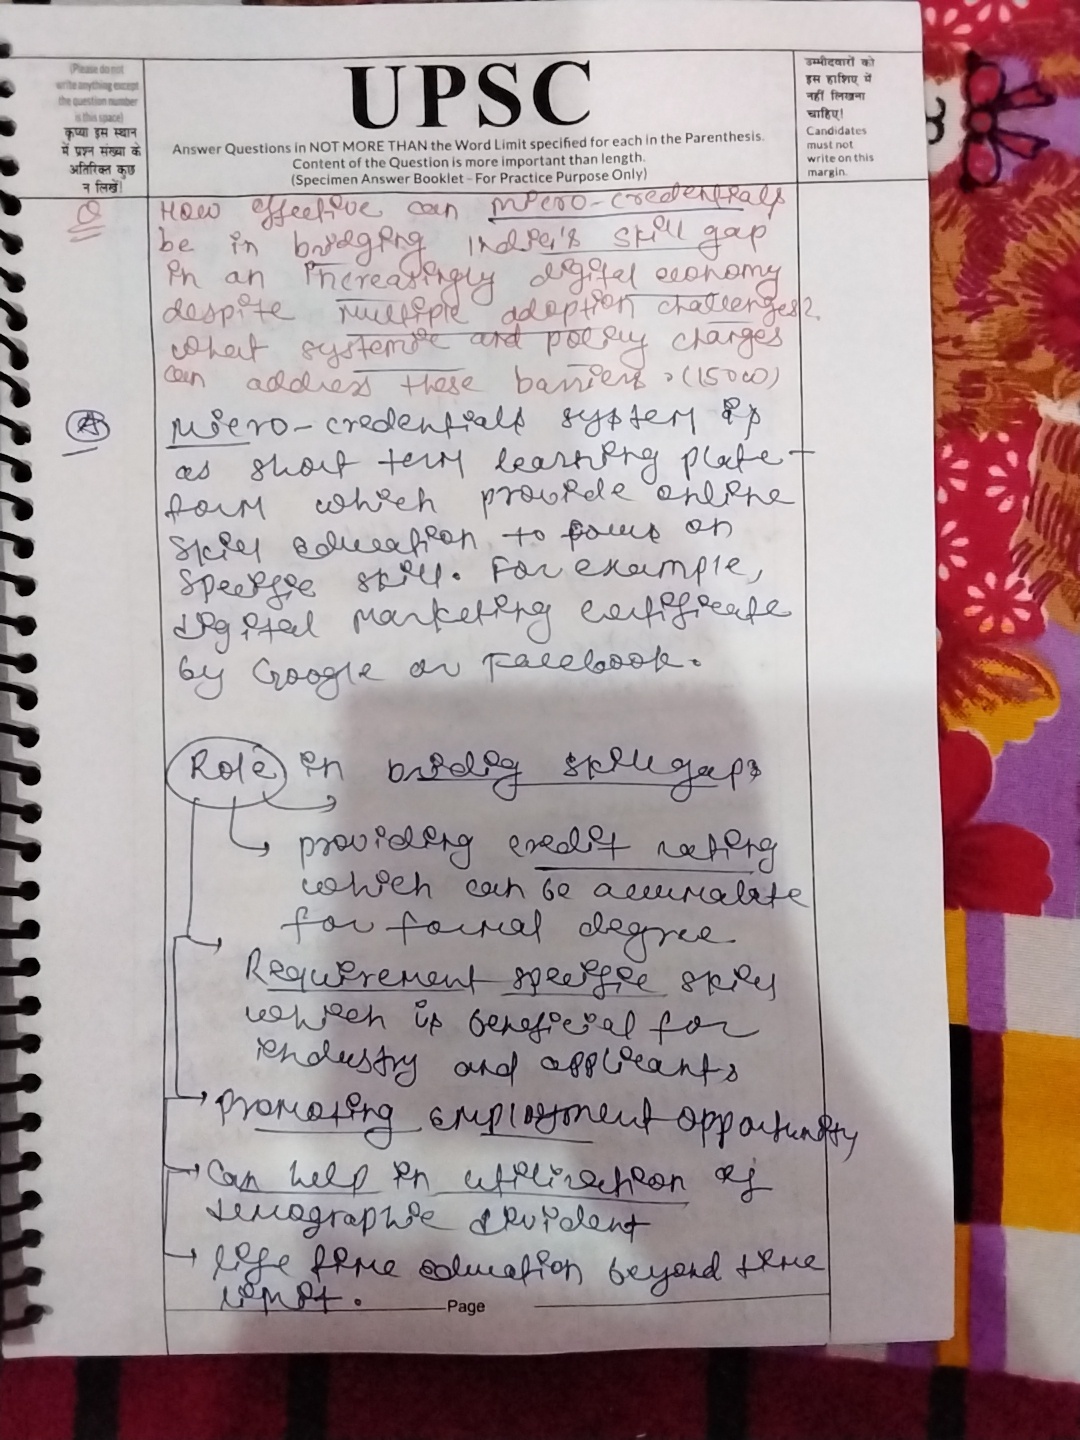 (Please do not
write anything except
the question number
is this space)
कृप्या इस स्थान
में प्रश्न संख्या के
अतिरिक्त कुछ
न लिखें!
UPSC
Answer Questions in NOT MORE THAN the Word Limit specified for each in the Parenthesis.
Content of the Question is more important than length.
(Specimen Answer Booklet - For Practice Purpose Only)
उम्मीदवारों को
इस हाशिए में
नहीं लिखना
चाहिए!
Candidates
must not
write on this
margin.
Q
How effective can micro-credentials
be in bridging India's skill gap
in an increasingly digital economy
despite multiple adoption challenges?
what systemic and policy changes
can address these barriers. (150w)
A
Micro-credentials system is
as short term learning plate-
form which provide online
skill education to focus on
specific skill. For example,
digital marketing certificate
by Google or Facebook.
Role in bridig skill gaps
providing credit rating
which can be accumalate
for formal degree
Requirement specific skills
which is beneficial for
industry and applicants
Promoting employment opportunity
Can help in utilization of
demographic divident
life time education beyond time
limit.
Page